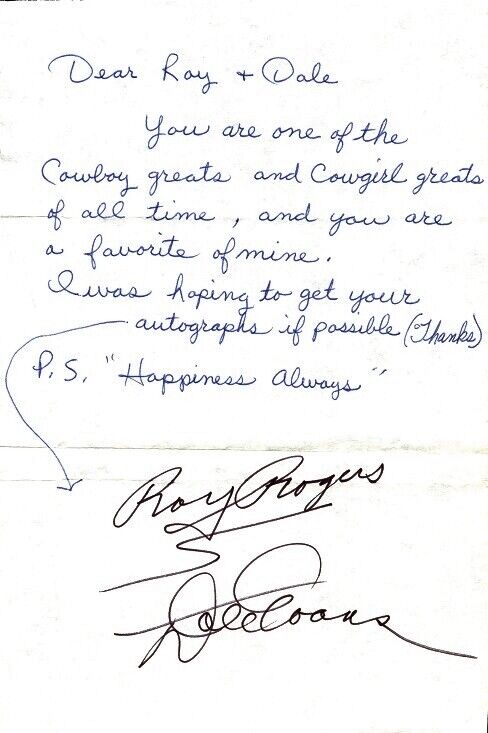 Dear Roy + Dale
You are one of the
Cowboy greats and Cowgirl greats
of all time, and you are
a favorite of mine.
I was hoping to get your
autographs if possible (Thanks)
P.S. "Happiness Always"
Roy Rogers
Dale Evans